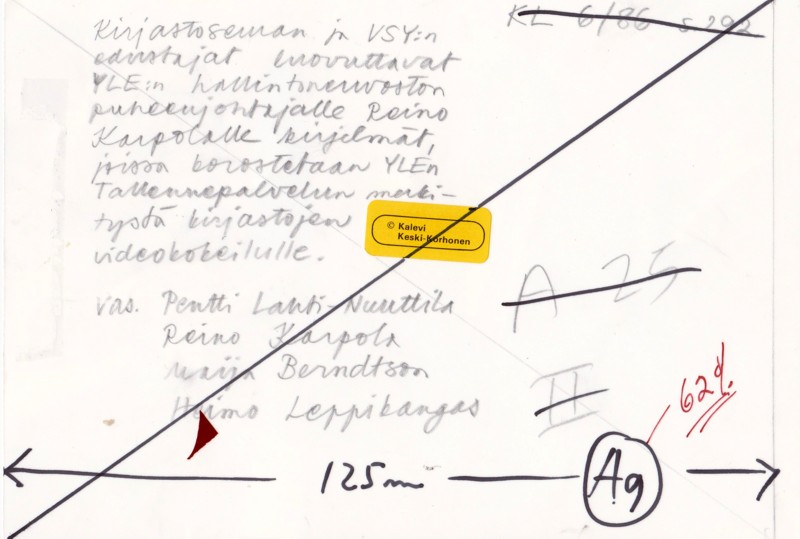 KL 6/86 s.292
Kirjastoseuran ja VSY:n
edustajat luovuttavat
YLE:n hallintoneuvoston
puheenjohtajalle Reino
Karpolalle kirjelmät,
joissa korostetaan YLEn
Tallennepalvelun merki-
tystä kirjastojen
videokokeilulle.
© Kalevi
Keski-Korhonen
vas. Pentti Lahti-Nuuttila
Reino Karpola
Maija Berndtson
Heimo Leppikangas
A 25
II
62%
125mm
Ag